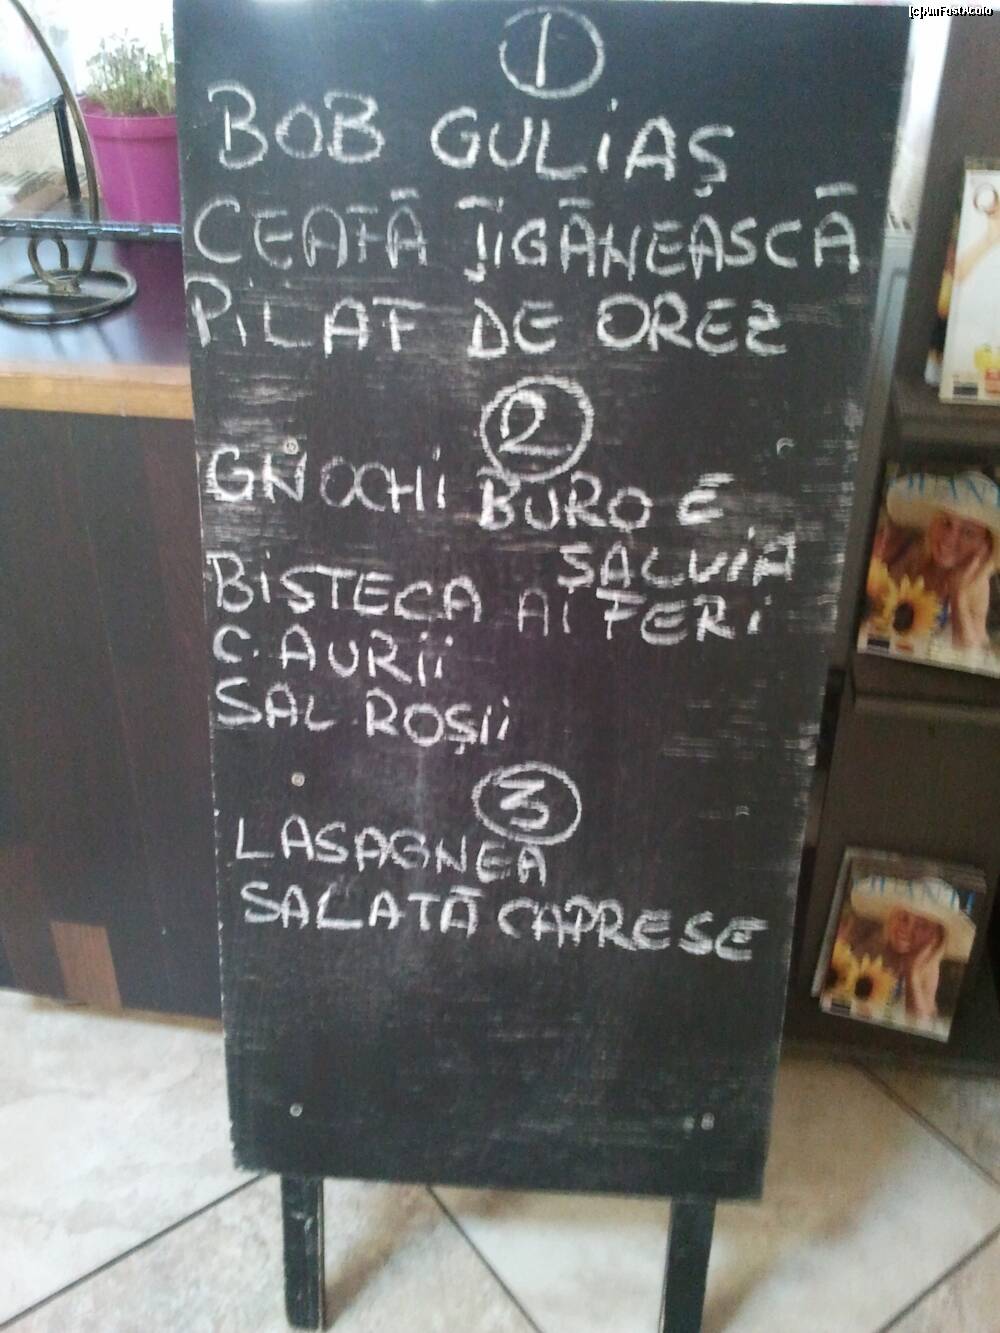 [c]AmFostAcolo
1
BOB GULIAȘ
CEAFĂ ȚIGĂNEASCĂ
PILAF DE OREZ
2
GNOCHI BURO E
SALVIA
BISTECA AI FERI
C. AURII
SAL ROȘII
3
LASAGNEA
SALATĂ CAPRESE